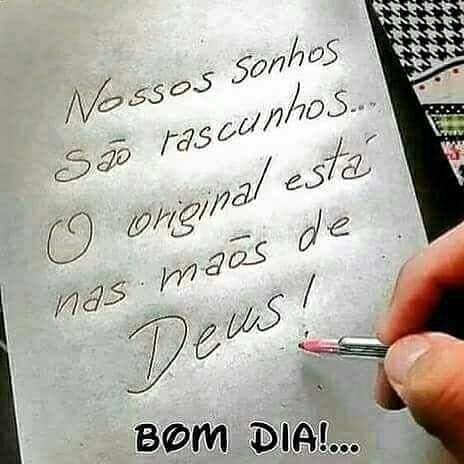 Nossos sonhos
São rascunhos...
O original está
nas mãos de
Deus!
BOM DIA!...